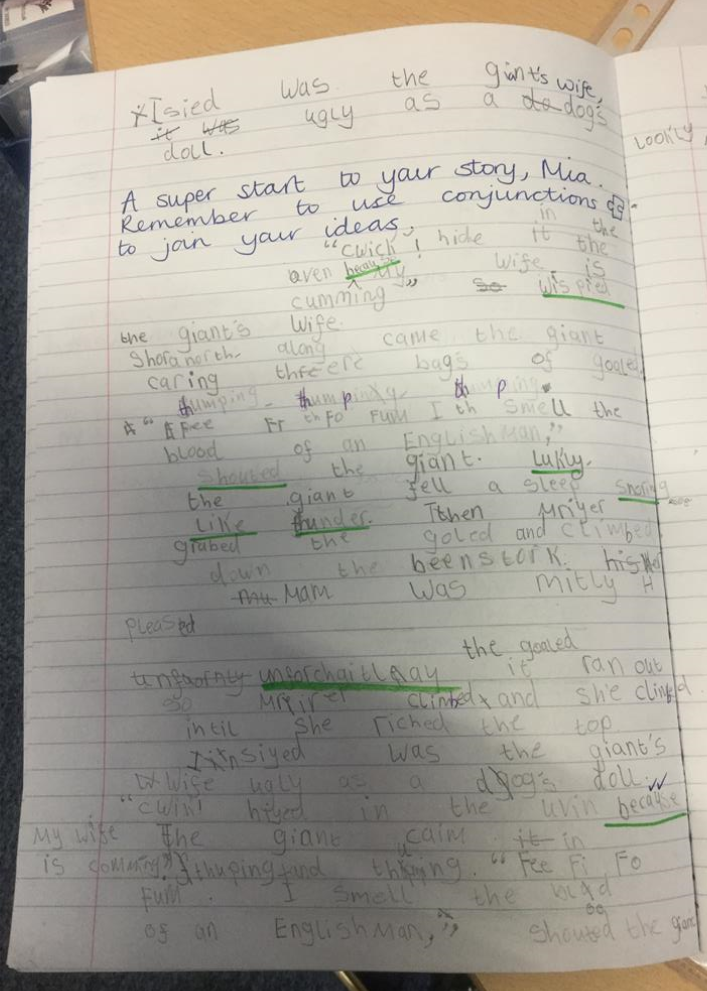 Isied was the giant's wife,
it was ugly as a do dog's
doll.
Lookly
A super start to your story, Mia.
Remember to use conjunctions
to join your ideas.
in the
"cwick! hide it the
aven because my wife is
cumming" so wispied
the giant's wife.
Shofanorth along came the giant
caring threere bags of goaled
thumping thumping thumping.
"Fee Fi Fo Fum I smell the
blood of an Englishman,"
shouted the giant. Lukly,
the giant fell a sleep snoring
Like thunder. Tthen Mriyer
grabed the goled and climbed
down the beenstork. his
mu Mam was mitly
pleased
the goaled
unforchaitlay it ran out
so Mriyer climbed and she climbed
intil she riched the top.
Iinsiyed was the giant's
wife ugly as a dog's doll.
"cwik! hiyed in the uvin because
My wife The giant caim it in
is comming" thuping and thuping. "Fee Fi Fo
Fum. I smell the blud
of an Englishman," shouted the giant